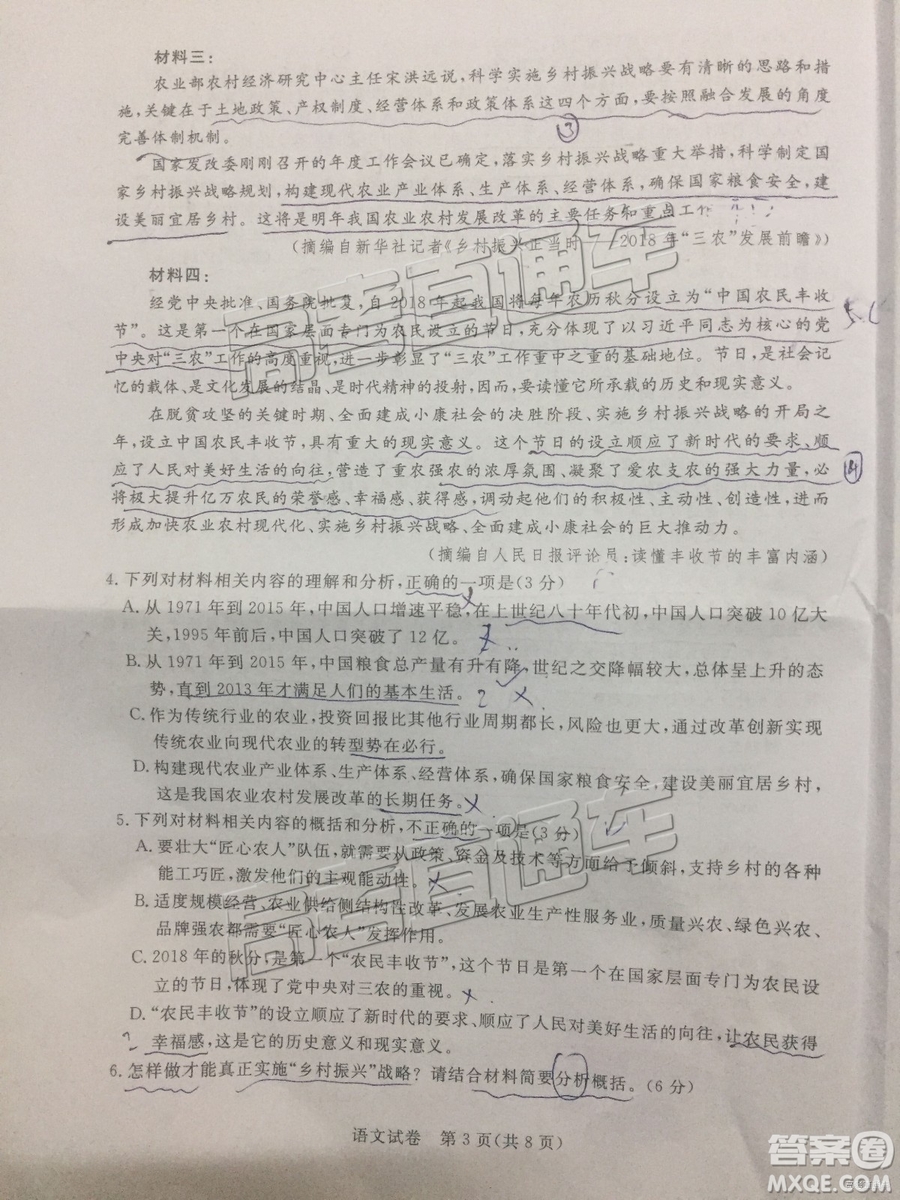 材料三：
农业部农村经济研究中心主任宋洪远说，科学实施乡村振兴战略要有清晰的思路和措
施，关键在于土地政策、产权制度、经营体系和政策体系这四个方面，要按照融合发展的角度
完善体制机制。
③
国家发改委刚刚召开的年度工作会议已确定，落实乡村振兴战略重大举措，科学制定国
家乡村振兴战略规划，构建现代农业产业体系、生产体系、经营体系，确保国家粮食安全，建
设美丽宜居乡村。这将是明年我国农业农村发展改革的主要任务和重点工作
（摘编自新华社记者《乡村振兴正当时 2018年“三农”发展前瞻》）
材料四：
经党中央批准、国务院批复，自2018年起我国将每年农历秋分设立为“中国农民丰收
节”。这是第一个在国家层面专门为农民设立的节日，充分体现了以习近平同志为核心的党
中央对“三农”工作的高度重视，进一步彰显了“三农”工作重中之重的基础地位。节日，是社会记
忆的载体、是文化发展的结晶、是时代精神的投射，因而，要读懂它所承载的历史和现实意义。
在脱贫攻坚的关键时期、全面建成小康社会的决胜阶段、实施乡村振兴战略的开局之
年，设立中国农民丰收节，具有重大的现实意义。这个节日的设立顺应了新时代的要求、顺
应了人民对美好生活的向往，营造了重农强农的浓厚氛围、凝聚了爱农支农的强大力量，必
将极大提升亿万农民的荣誉感、幸福感、获得感，调动起他们的积极性、主动性、创造性，进而
形成加快农业农村现代化、实施乡村振兴战略、全面建成小康社会的巨大推动力。
（摘编自人民日报评论员：读懂丰收节的丰富内涵）
4. 下列对材料相关内容的理解和分析，正确的一项是（3分）
A. 从1971年到2015年，中国人口增速平稳，在上世纪八十年代初，中国人口突破10亿大
关，1995年前后，中国人口突破了12亿。
B. 从1971年到2015年，中国粮食总产量有升有降，世纪之交降幅较大，总体呈上升的态
势，直到2013年才满足人们的基本生活。
C. 作为传统行业的农业，投资回报比其他行业周期都长，风险也更大，通过改革创新实现
传统农业向现代农业的转型势在必行。
D. 构建现代农业产业体系、生产体系、经营体系，确保国家粮食安全，建设美丽宜居乡村，
这是我国农业农村发展改革的长期任务。
5. 下列对材料相关内容的概括和分析，不正确的一项是（3分）
A. 要壮大“匠心农人”队伍，就需要从政策、资金及技术等方面给予倾斜，支持乡村的各种
能工巧匠，激发他们的主观能动性。
B. 适度规模经营、农业供给侧结构性改革、发展农业生产性服务业，质量兴农、绿色兴农、
品牌强农都需要“匠心农人”发挥作用。
C. 2018年的秋分，是第一个“农民丰收节”，这个节日是第一个在国家层面专门为农民设
立的节日，体现了党中央对三农的重视。
D. “农民丰收节”的设立顺应了新时代的要求、顺应了人民对美好生活的向往，让农民获得
幸福感，这是它的历史意义和现实意义。
6. 怎样做才能真正实施“乡村振兴”战略？请结合材料简要分析概括。（6分）
语文试卷 第3页（共8页）
高考直通车
高考直通车
高考直通车
答案卷
MXQE.COM